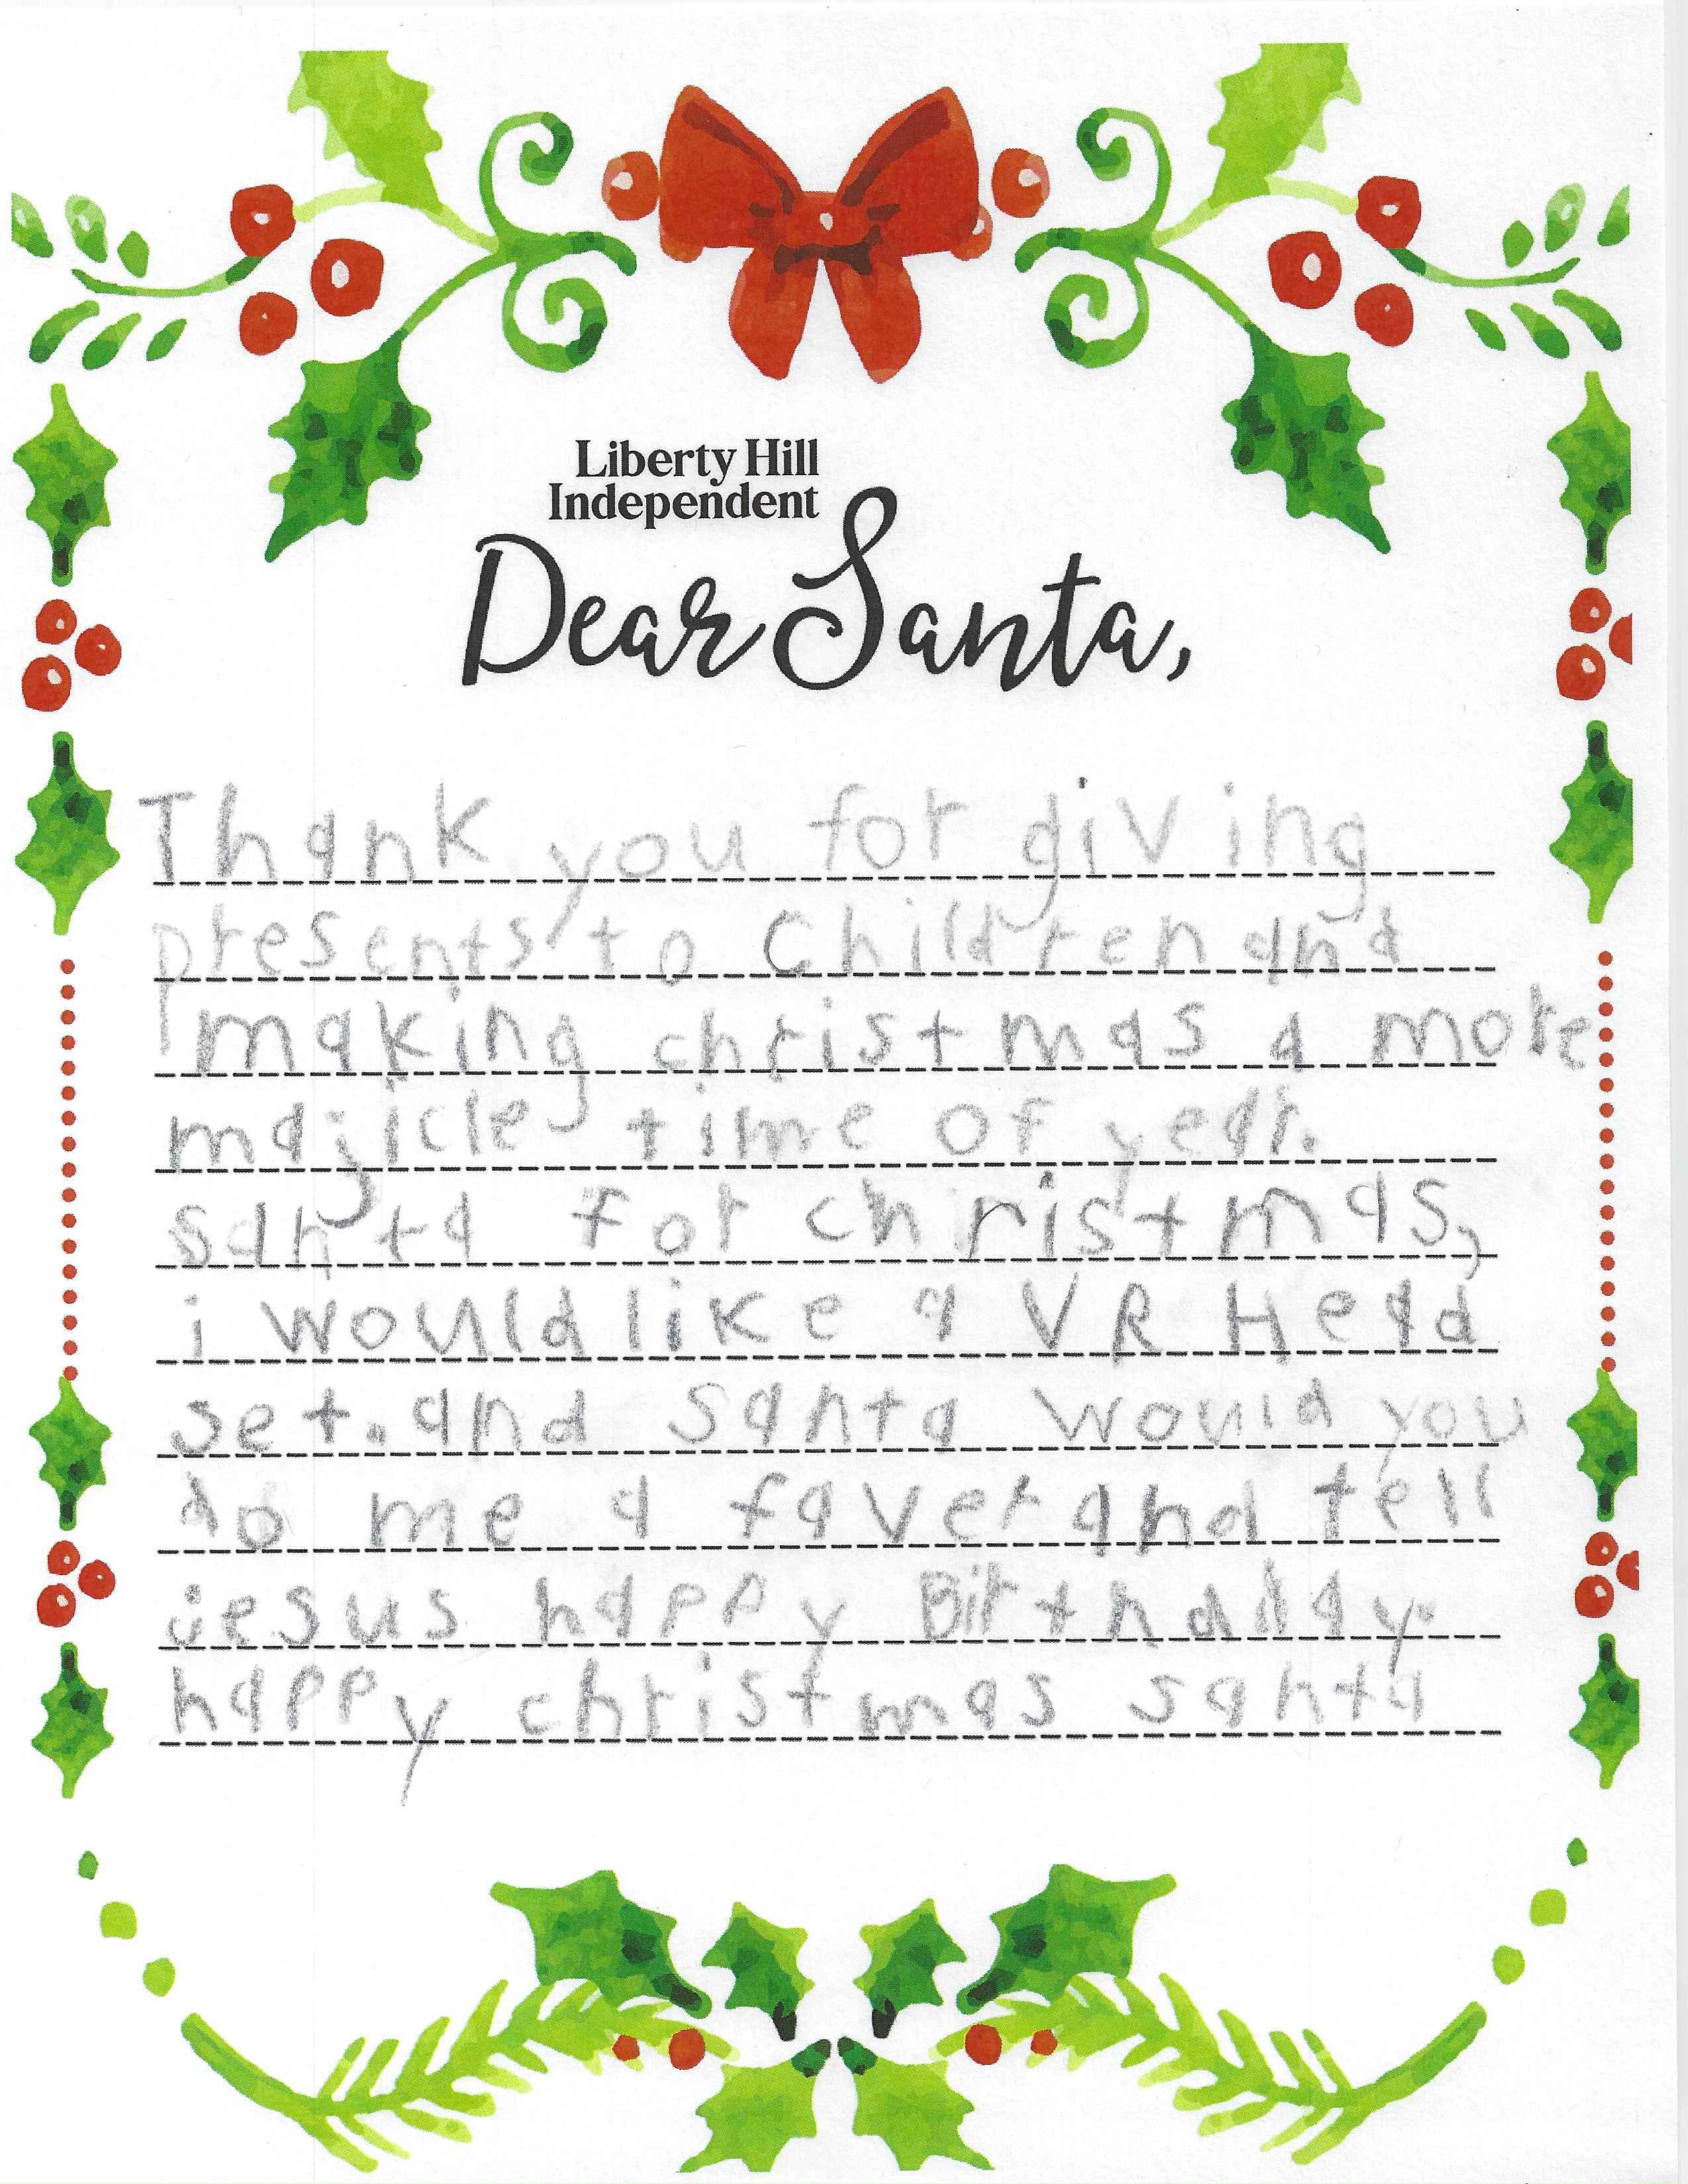 Liberty Hill
Independent
Dear Santa,
Thank you for giving
presents to Children and
making christmas a more
majicle time of year.
santa for christmas,
i would like a VR Head
set. and santa would you
do me a faver and tell
jesus happy Birthday.
happy christmas santa